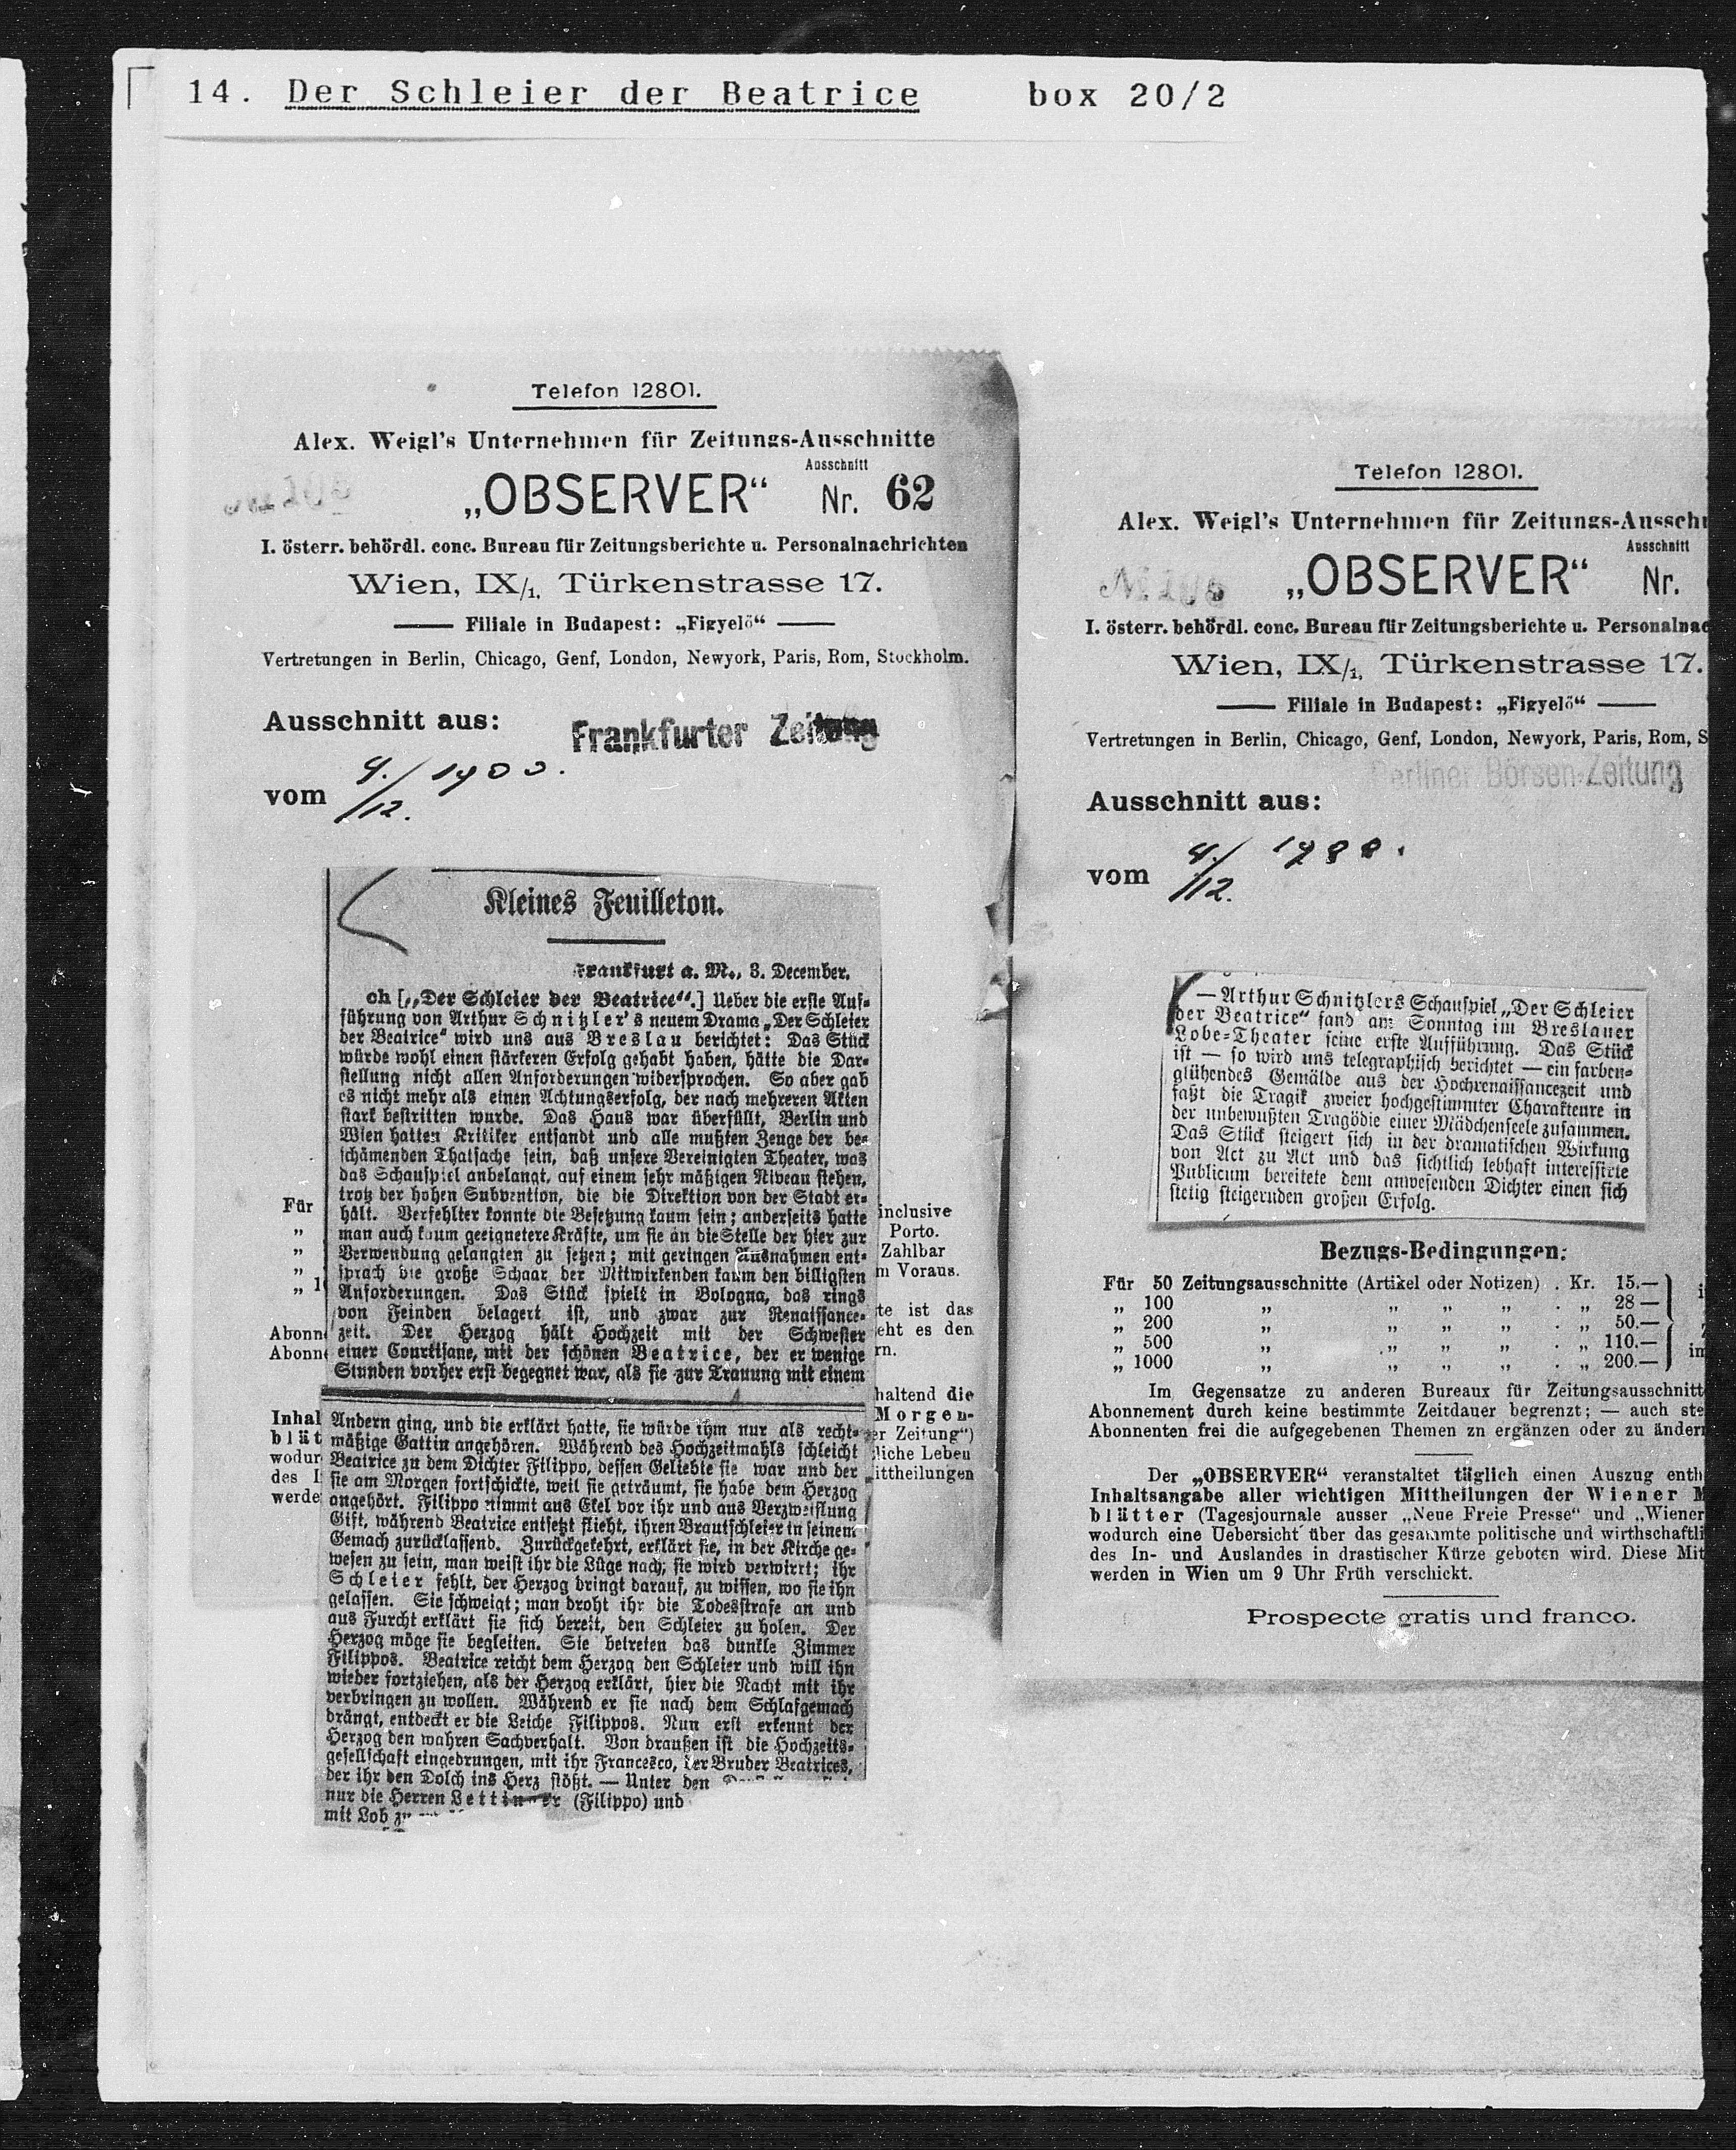 14. Der Schleier der Beatrice box 20/2
Telefon 12801.
Alex. Weigl's Unternehmen für Zeitungs-Ausschnitte
Ausschnitt
„OBSERVER“ Nr. 62
I. österr. behördl. conc. Bureau für Zeitungsberichte u. Personalnachrichten
Wien, IX/1, Türkenstrasse 17.
Filiale in Budapest: „Figyelő“
Vertretungen in Berlin, Chicago, Genf, London, Newyork, Paris, Rom, Stockholm.
Ausschnitt aus: Frankfurter Zeitung
vom 4./12. 1900.
Kleines Feuilleton.
Frankfurt a. M., 3. December.
oh [„Der Schleier der Beatrice“.] Ueber die erste Auf-
führung von Arthur Schnitzler's neuem Drama „Der Schleier
der Beatrice“ wird uns aus Breslau berichtet: Das Stück
würde wohl einen stärkeren Erfolg gehabt haben, hätte die Dar-
stellung nicht allen Anforderungen widersprochen. So aber gab
es nicht mehr als einen Achtungserfolg, der nach mehreren Akten
stark bestritten wurde. Das Haus war überfüllt, Berlin und
Wien hatten Kritiker entsandt und alle mußten Zeuge der be-
schämenden Thatsache sein, daß unsere Vereinigten Theater, was
das Schauspiel anbelangt, auf einem sehr mäßigen Niveau stehen,
trotz der hohen Subvention, die die Direktion von der Stadt er-
hält. Verfehlter konnte die Besetzung kaum sein; anderseits hatte
man auch kaum geeignetere Kräfte, um sie an die Stelle der hier zur
Verwendung gelangten zu setzen; mit geringen Ausnahmen ent-
sprach die große Schaar der Mitwirkenden kaum den billigsten
Anforderungen. Das Stück spielt in Bologna, das rings
von Feinden belagert ist, und zwar zur Renaissance-
zeit. Der Herzog hält Hochzeit mit der Schwester
einer Courtisane, mit der schönen Beatrice, der er wenige
Stunden vorher erst begegnet war, als sie zur Trauung mit einem
Andern ging, und die erklärt hatte, sie würde ihm nur als recht-
mäßige Gattin angehören. Während des Hochzeitmahls schleicht
Beatrice zu dem Dichter Filippo, dessen Geliebte sie war und der
sie am Morgen fortschickte, weil sie geträumt, sie habe dem Herzog
angehört. Filippo nimmt aus Ekel vor ihr und aus Verzweiflung
Gift, während Beatrice entsetzt flieht, ihren Brautschleier in seinem
Gemach zurücklassend. Zurückgekehrt, erklärt sie, in der Kirche ge-
wesen zu sein, man weist ihr die Lüge nach; sie wird verwirrt; ihr
Schleier fehlt, der Herzog dringt darauf, zu wissen, wo sie ihn
gelassen. Sie schweigt; man droht ihr die Todesstrafe an und
aus Furcht erklärt sie sich bereit, den Schleier zu holen. Der
Herzog möge sie begleiten. Sie betreten das dunkle Zimmer
Filippos. Beatrice reicht dem Herzog den Schleier und will ihn
wieder fortziehen, als der Herzog erklärt, hier die Nacht mit ihr
verbringen zu wollen. Während er sie nach dem Schlafgemach
drängt, entdeckt er die Leiche Filippos. Nun erst erkennt der
Herzog den wahren Sachverhalt. Von draußen ist die Hochzeits-
gesellschaft eingedrungen, mit ihr Francesco, der Bruder Beatrices,
der ihr den Dolch ins Herz stößt. — Unter den
nur die Herren (Filippo) und
mit Lob
Für
„
„
„
„ 1
Abonn
Abonn
Inhal
blät
wodur
des I
werde
inclusive
Porto.
Zahlbar
m Voraus.
te ist das
eht es den
rn.
haltend die
Morgen-
er Zeitung“)
liche Leben
ittheilungen
Telefon 12801.
Alex. Weigl's Unternehmen für Zeitungs-Ausschn
Ausschnitt
„OBSERVER“ Nr.
I. österr. behördl. conc. Bureau für Zeitungsberichte u. Personalnac
Wien, IX/1, Türkenstrasse 17.
Filiale in Budapest: „Figyelő“
Vertretungen in Berlin, Chicago, Genf, London, Newyork, Paris, Rom, S
Berliner Börsen-Zeitung
Ausschnitt aus:
vom 4./12. 1900.
— Arthur Schnitzlers Schauspiel „Der Schleier
der Beatrice“ fand am Sonntag im Breslauer
Lobe-Theater seine erste Aufführung. Das Stück
ist — so wird uns telegraphisch berichtet — ein farben-
glühendes Gemälde aus der Hochrenaissancezeit und
faßt die Tragik zweier hochgestimmter Charaktere in
der unbewußten Tragödie einer Mädchenseele zusammen.
Das Stück steigert sich in der dramatischen Wirkung
von Act zu Act und das sichtlich lebhaft interessirte
Publicum bereitete dem anwesenden Dichter einen sich
stetig steigernden großen Erfolg.
Bezugs-Bedingungen:
Für 50 Zeitungsausschnitte (Artikel oder Notizen) . Kr. 15.—
„ 100 „ „ „ „ . „ 28 —
„ 200 „ „ „ „ . „ 50.—
„ 500 „ „ „ „ . „ 110.—
„ 1000 „ „ „ „ . „ 200.—
Im Gegensatze zu anderen Bureaux für Zeitungsausschnitt
Abonnement durch keine bestimmte Zeitdauer begrenzt; — auch ste
Abonnenten frei die aufgegebenen Themen zn ergänzen oder zu änder
Der „OBSERVER“ veranstaltet täglich einen Auszug enth
Inhaltsangabe aller wichtigen Mittheilungen der Wiener M
blätter (Tagesjournale ausser „Neue Freie Presse“ und „Wiener
wodurch eine Uebersicht über das gesammte politische und wirthschaftli
des In- und Auslandes in drastischer Kürze geboten wird. Diese Mit
werden in Wien um 9 Uhr Früh verschickt.
Prospecte gratis und franco.